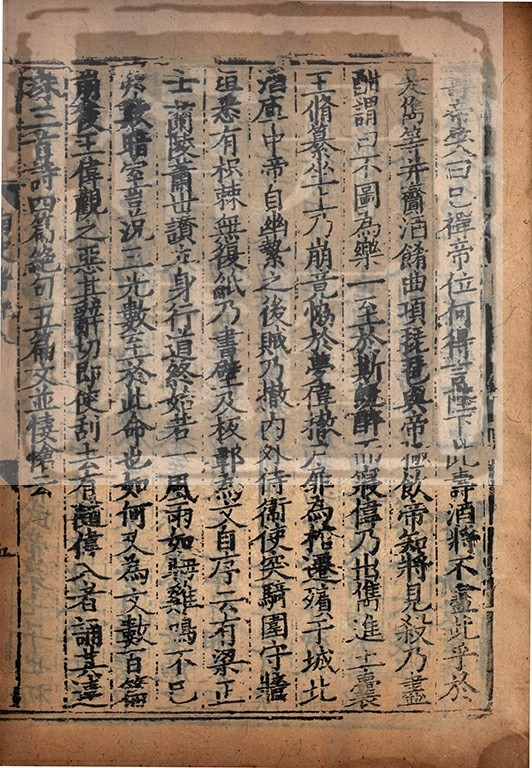 壽帝笑曰已禪帝位何得言陛下此壽酒將不盡此乎於
是雋等并齎酒餚曲項琵琶與帝極飲帝知將見殺乃盡
酣謂曰不圖為樂一至於斯既醉而寢偉乃出雋進土囊
王脩纂坐上乃崩竟協於夢偉撤戶扉為棺遷殯于城北
酒庫中帝自幽縶之後賊乃撤內外侍衞使突騎圍守牆
垣悉有枳棘無復紙乃書壁及板鄣為文自序云有梁正
士蘭陵蕭世讚立身行道終始若一風雨如晦雞鳴不已
弗欺暗室豈況三光數至於此命也如何又為文數百篇
崩後王偉觀之惡其辭切即使刮去有隨偉入者誦其連
珠三首詩四篇絕句五篇文並悽愴云